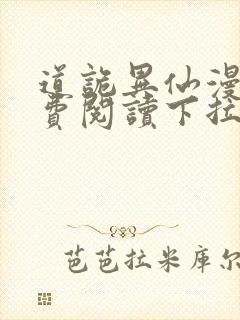 道詭異仙漫
費閱讀下拉
芭芭拉米库尔